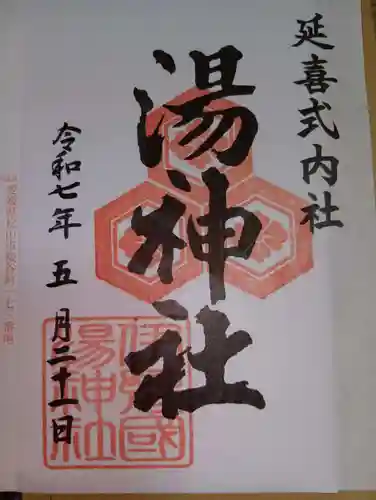 延喜式内社
湯神社
令和七年五月二十一日
伊豫國
湯神社